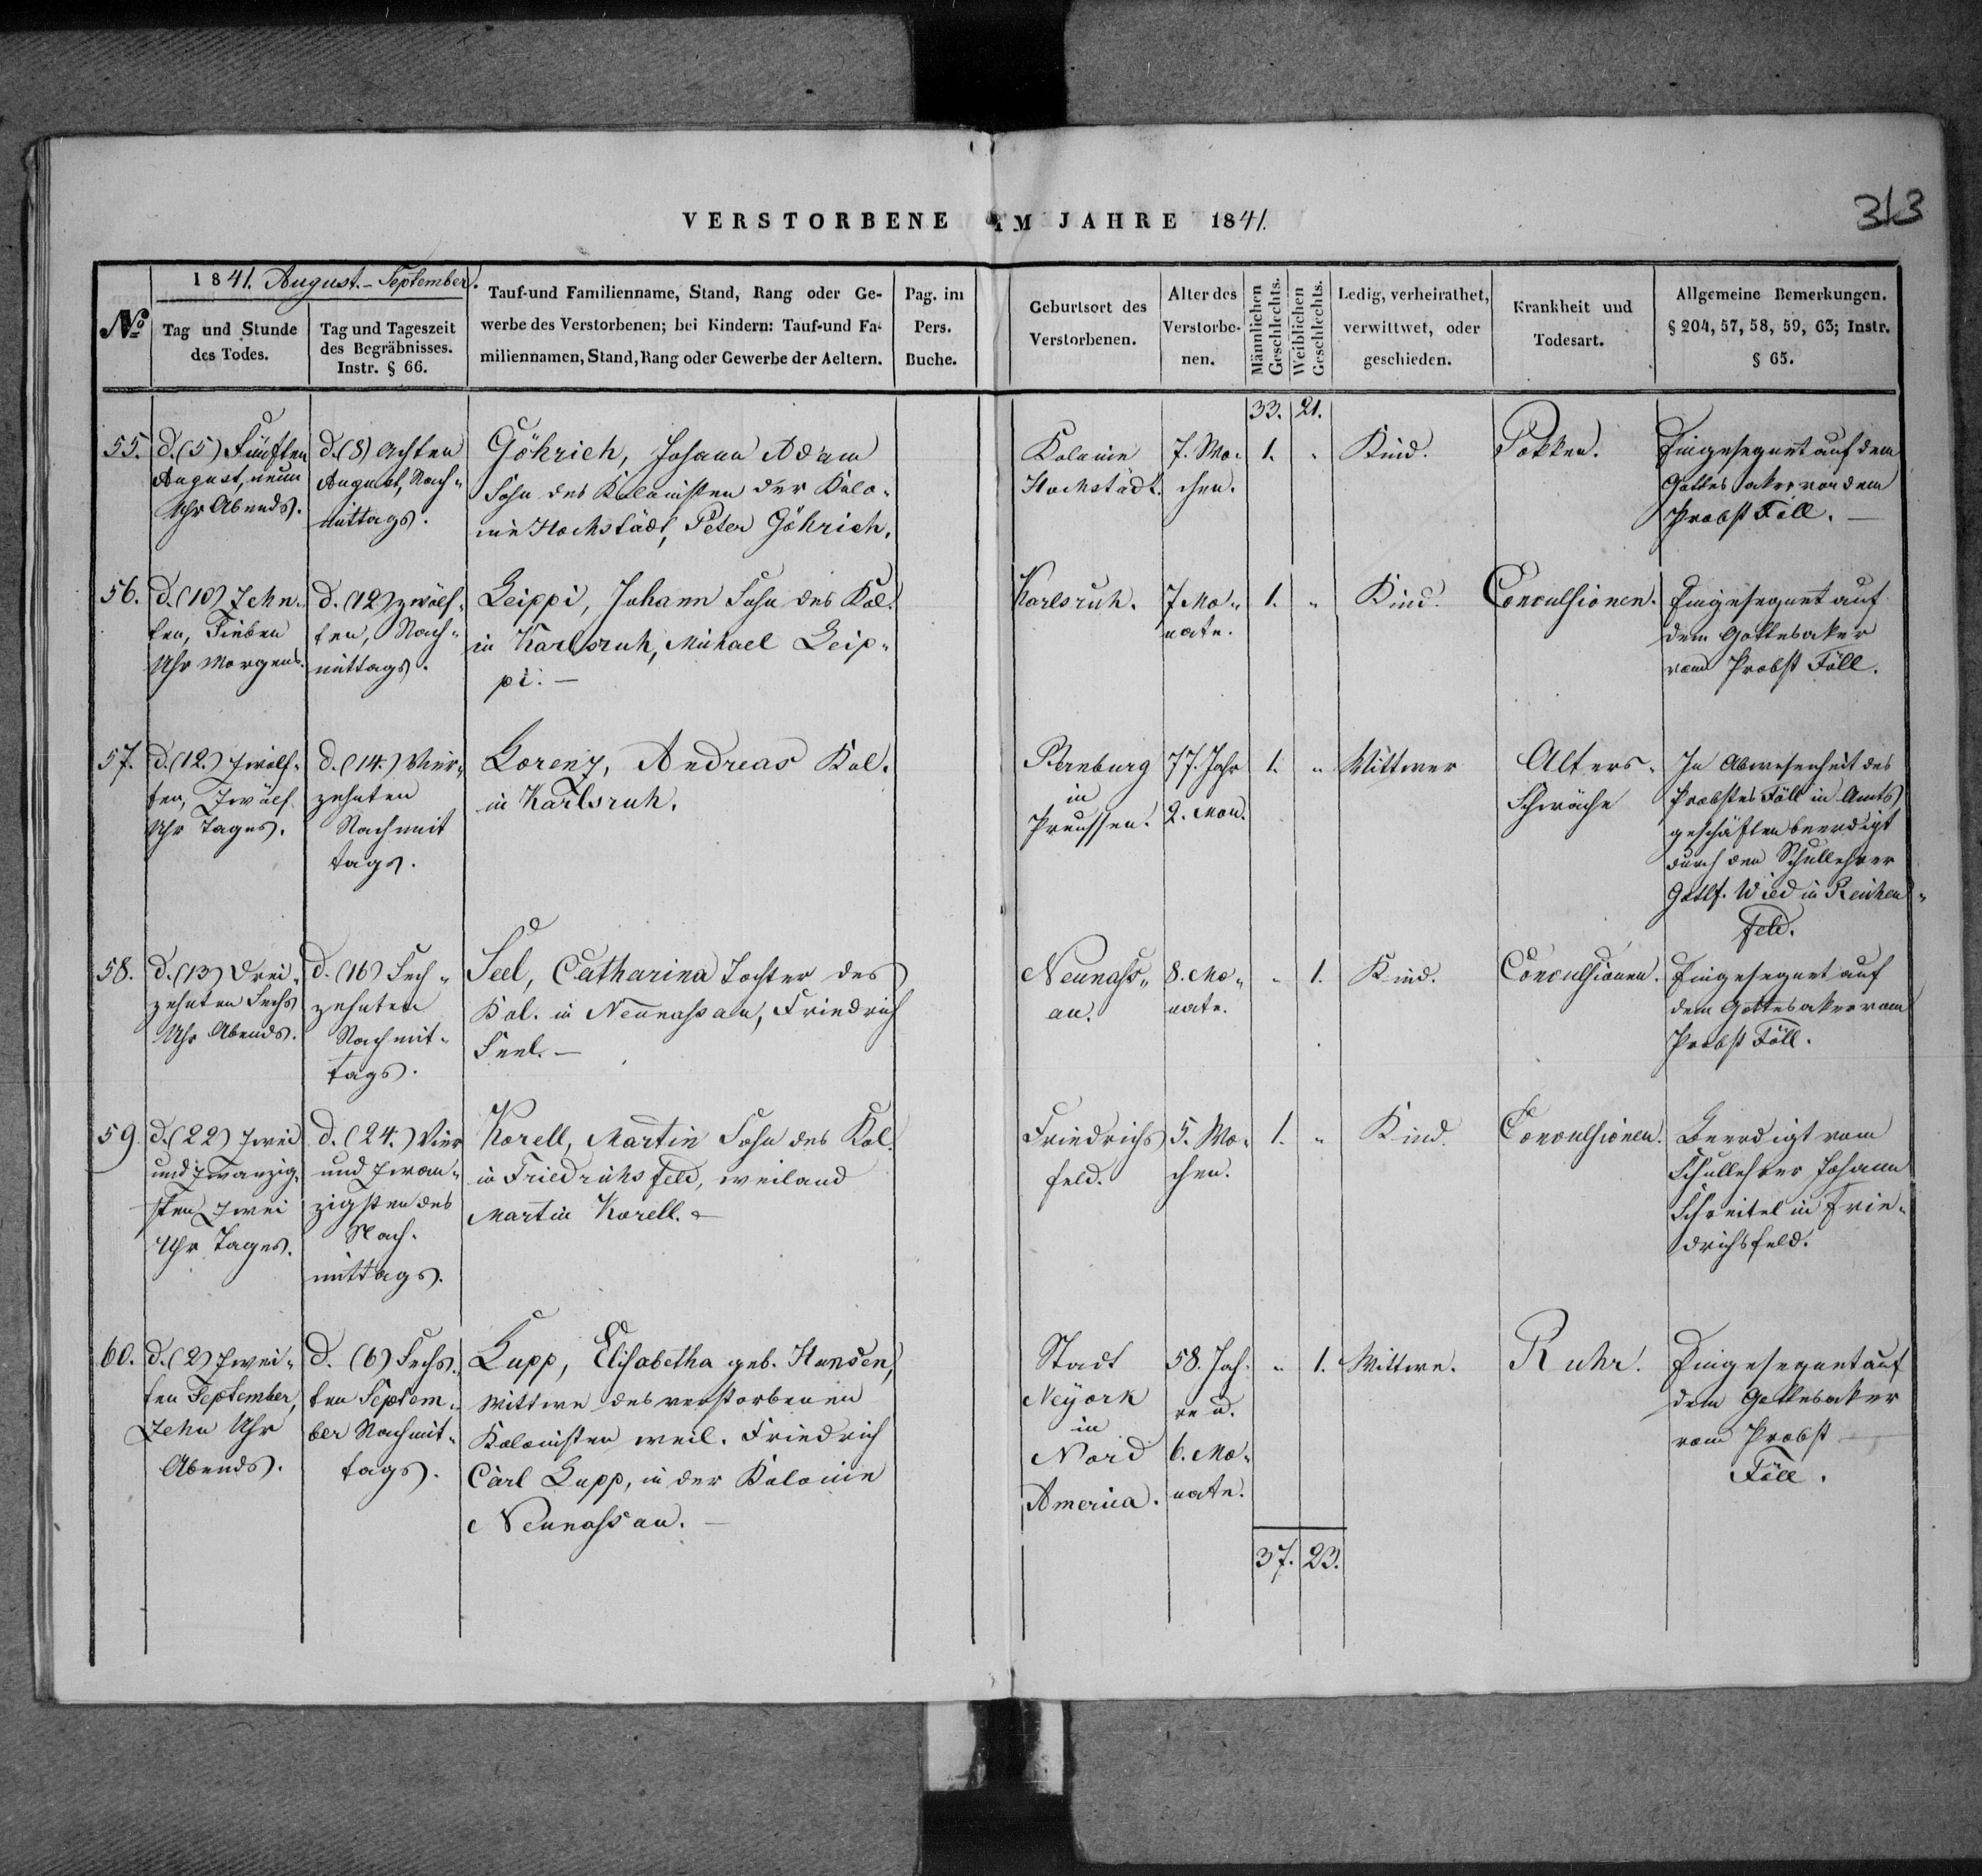 VERSTORBENE IM JAHRE 1841.
313
No
1841. August.-September.
Tag und Stunde
des Todes.
Tag und Tageszeit
des Begräbnisses.
Instr. § 66.
Tauf-und Familienname, Stand, Rang oder Ge-
werbe des Verstorbenen; bei Kindern: Tauf-und Fa-
miliennamen, Stand, Rang oder Gewerbe der Aeltern.
Pag. im
Pers.
Buche.
Geburtsort des
Verstorbenen.
Alter des
Verstorbe-
nen.
Männlichen
Geschlechts.
Weiblichen
Geschlechts.
Ledig, verheirathet,
verwittwet, oder
geschieden.
Krankheit und
Todesart.
Allgemeine Bemerkungen.
§ 204, 57, 58, 59, 63; Instr.
§ 65.
33. 21.
55.
d. (5) Fünften
August, neun
Uhr Abends.
d. (8) Achten
August, Nach„
mittags.
Göhrich, Johann Adam
Sohn des Kolonisten der Kolo„
nie Hochstädt, Peter Göhrich.
Kolonie
Hochstädt.
7. Wo„
chen.
1. „
Kind.
Pokken.
Eingesegnet auf dem
Gottesaker von dem
Probst Föll. —
56.
d. (10) Zehn„
ten, Sieben
Uhr Morgens.
d. (12) zwölf„
ten, Nach„
mittags.
Leippi, Johann Sohn des Kol.
in Karlsruh, Michael Leip„
pi. —
Karlsruh.
7 Mo„
nate.
1. „
Kind.
Convulsionen.
Eingesegnet auf
dem Gottesaker
vom Probst Föll.
57.
d. (12.) zwölf„
ten, Zwölf
Uhr Tages.
d. (14.) Vier„
zehnten
Nachmit
tags.
Lorenz, Andreas Kol.
in Karlsruh.
Bernburg
in
Preussen.
77. Jahr
2. Mon.
1. „
Wittwer
Alters„
Schwäche
In Abwesenheit des
Probstes Föll in Amts„
geschäften beerdigt
durch den Schullehrer
Gottf. Wied in Reichen„
feld.
58.
d. (13) Drei„
zehnten Sechs
Uhr Abends.
d. (16) Sech„
zehnten
Nachmit„
tags.
Seel, Catharina Tochter des
Kol. in Neunassau, Friedrich
Seel. —
Neunass„
au.
8. Mo„
nate.
„ 1.
Kind.
Convulsionen.
Eingesegnet auf
dem Gottesaker vom
Probst Föll.
59.
d. (22) Zwei
und Zwanzig„
sten Zwei
Uhr Tages.
d. (24.) Vier
und Zwan„
zigsten des
Nach„
mittags.
Korell, Martin Sohn des Kol.
in Friedrichsfeld, weiland
Martin Korell. —
Friedrichs
feld.
5. Wo„
chen.
1. „
Kind.
Convulsionen.
Beerdigt vom
Schullehrer Johann
in Frie„
drichsfeld.
60.
d. (2) Zwei„
ten September,
Zehn Uhr
Abends.
d. (6) Sechs„
ten Septem„
ber Nachmit„
tags.
Lupp, Elisabetha geb. Hunsen,
Wittwe des verstorbenen
Kolonisten weil. Friedrich
Carl Lupp, in der Kolonie
Neunassau. —
Stadt
Neyork
in
Nord
America.
58. Jah„
re u.
6. Mo„
nate.
„ 1.
Wittwe.
Ruhr.
Eingesegnet auf
dem Gottesaker
vom Probst
Föll.
37. 23.